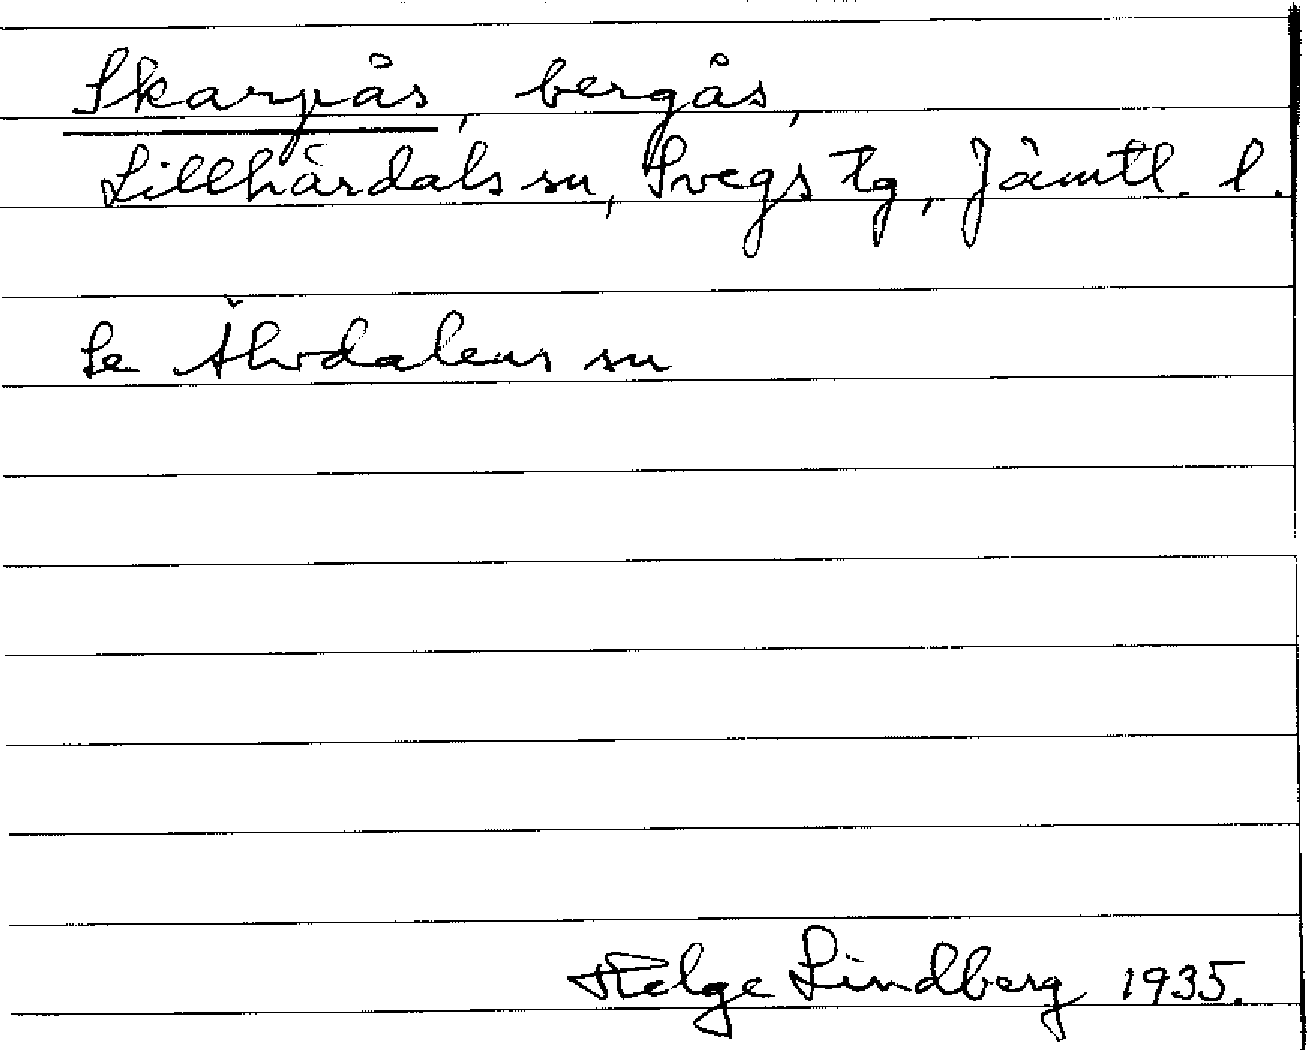 Skarpås, bergås,
Lillhärdals sn, Svegs tg, Jämtl. l.
Se Älvdalens sn
Helge Lindberg 1935.